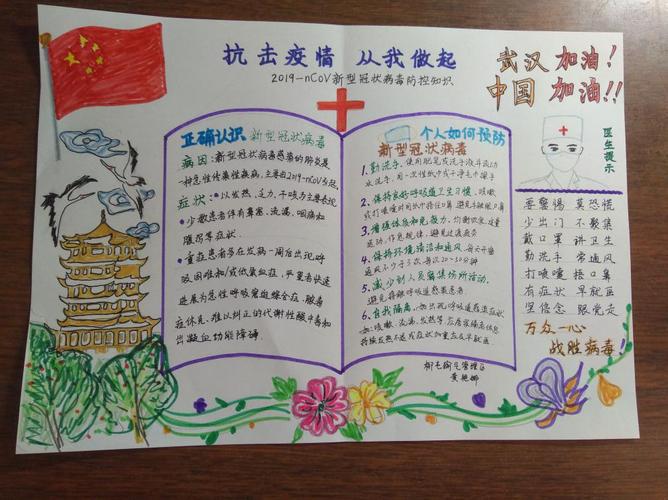 抗击疫情 从我做起
2019-nCoV新型冠状病毒防控知识
武汉 加油!
中国 加油!!
正确认识 新型冠状病毒
病因:新型冠状病毒感染的肺炎是
一种急性传染性疾病,主要由2019-nCoV引起。
症状:以发热、乏力、干咳为主要表现
少数患者伴有鼻塞、流涕、咽痛和
腹泻等症状.
重症患者多在发病一周后出现呼
吸困难和/或低氧血症,严重者快速
进展为急性呼吸窘迫综合征、脓毒
症休克、难以纠正的代谢性酸中毒和
出凝血功能障碍.
个人如何预防
新型冠状病毒
1.勤洗手。使用肥皂或洗手液并流动
水洗手,用一次性纸巾或干净毛巾擦手
2.保持良好呼吸道卫生习惯。咳嗽
或打喷嚏时用纸巾捂住口鼻
3.增强体质和免疫力,均衡饮食、适量
运动、作息规律,避免过度疲劳
4.保持环境清洁和通风,每天开窗
通风不少于3次,每次20~30分钟
5.减少到人员密集场所活动,
避免接触呼吸道感染患者
6.自我隔离,如出现呼吸道感染症状
如咳嗽、流涕、发热等,应居家隔离休息
持续发热不退或症状加重应及早就医
医生提示
要警惕 莫恐慌
少出门 不聚集
戴口罩 讲卫生
勤洗手 常通风
打喷嚏 捂口鼻
有症状 早就医
坚信念 跟党走
万众一心
战胜病毒!
黄艳娜